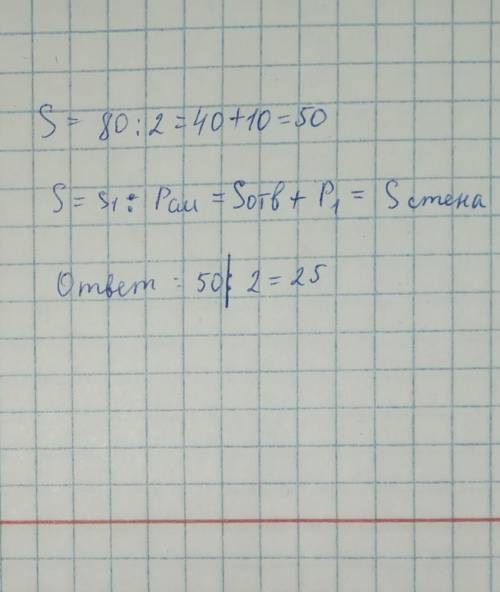 S = 80 : 2 = 40 + 10 = 50
S = S₁ : Pсм = Sотв + P₁ = S стена
Ответ : 50 : 2 = 25